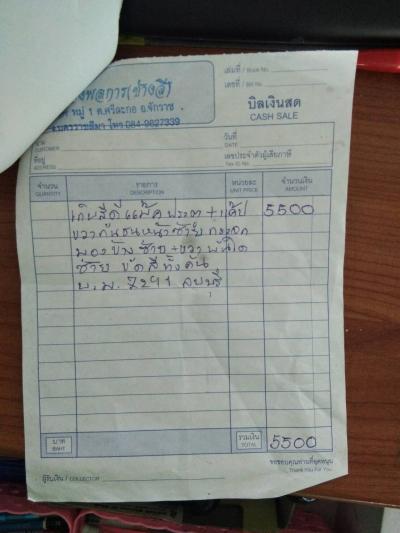 พลการ(ช่างอี)
หมู่ 1 ต.ศรีละกอ อ.จักราช
จ.นครราชสีมา โทร 084-9827339
เล่มที่ / Book No.
เลขที่ / Bill No.
บิลเงินสด
CASH SALE
นาม
CUSTOMER
วันที่
DATE
ที่อยู่
ADDRESS
เลขประจำตัวผู้เสียภาษี
Tax ID No.
จำนวน รายการ หน่วยละ จำนวนเงิน
QUANTITY DESCRIPTION UNIT PRICE AMOUNT
เก็บสีดีแม๊ค ประตู + แค๊ป 5500
ขวา กันชนหน้าซ้าย กระจก
มองข้างซ้าย + ขวา บันได
ซ้าย ขัดสีทั้งคัน
บ.ม. 7291 ลพบุรี
บาท รวมเงิน 5500
BAHT TOTAL
ขอขอบคุณท่านที่อุดหนุน
Thank You For You
ผู้รับเงิน / COLLECTOR